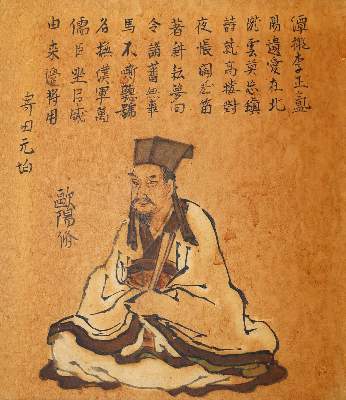 寄田元均
由來邊將用
儒臣坐以威
名撫漢軍萬
馬不嘶聽號
令諸蕃無事
著耕耘夢回
夜帳聞羌笛
詩就高樓對
隴雲莫忘鎮
陽遺愛在北
潭桃李正氳
歐陽脩